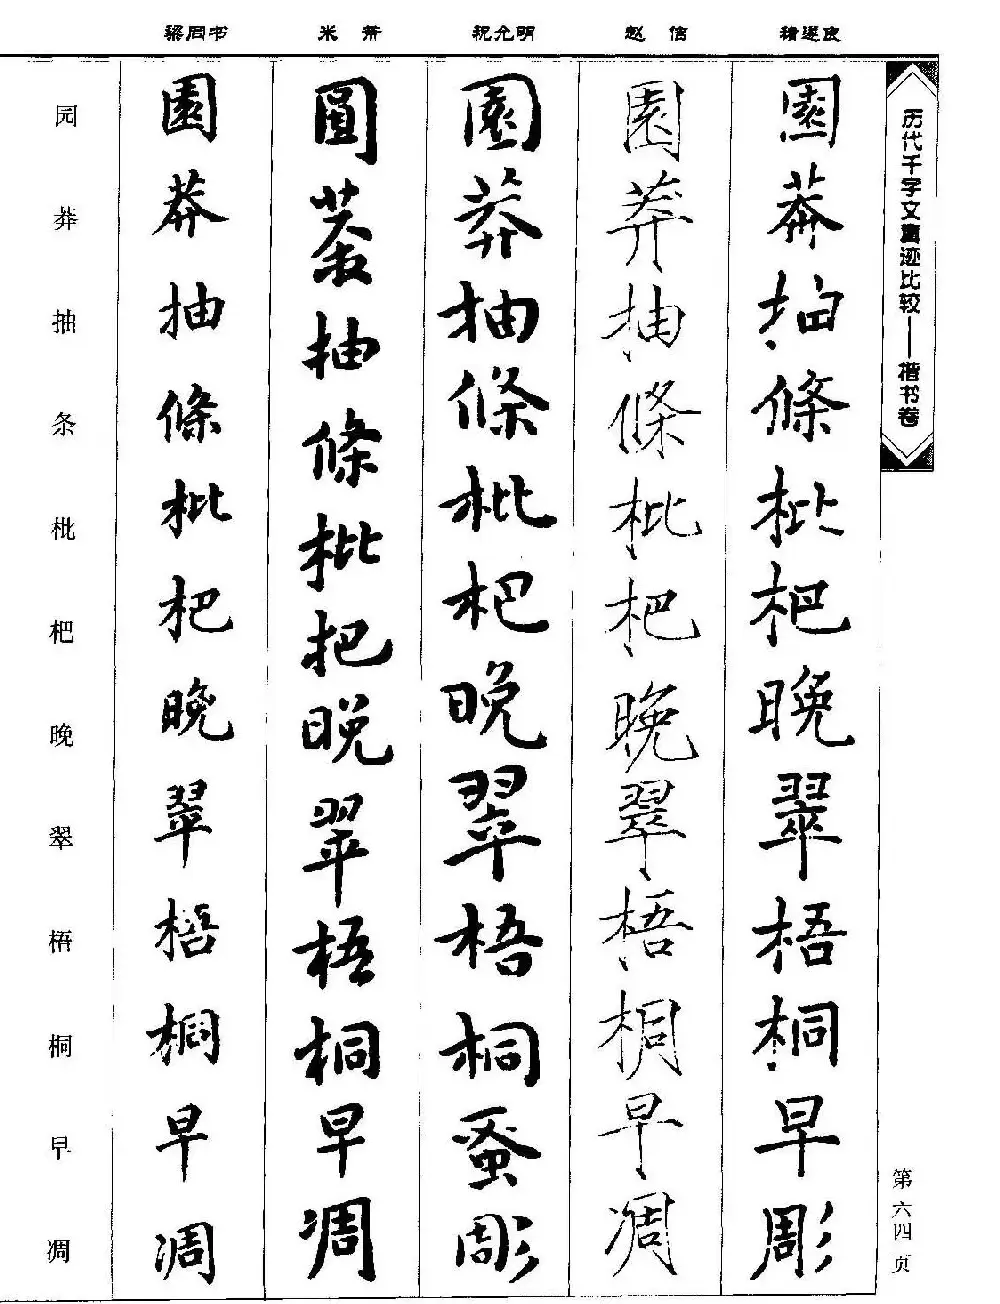 历代千字文真迹比较——楷书卷
第六四页
褚遂良
園莽抽條枇杷晚翠梧桐早彫
赵佶
園莽抽條枇杷晚翠梧桐早凋
祝允明
園莽抽條枇杷晚翠梧桐蚤彫
米芾
園莽抽條枇杷晚翠梧桐早凋
梁同书
園莽抽條枇杷晚翠梧桐早凋
园莽抽条枇杷晚翠梧桐早凋